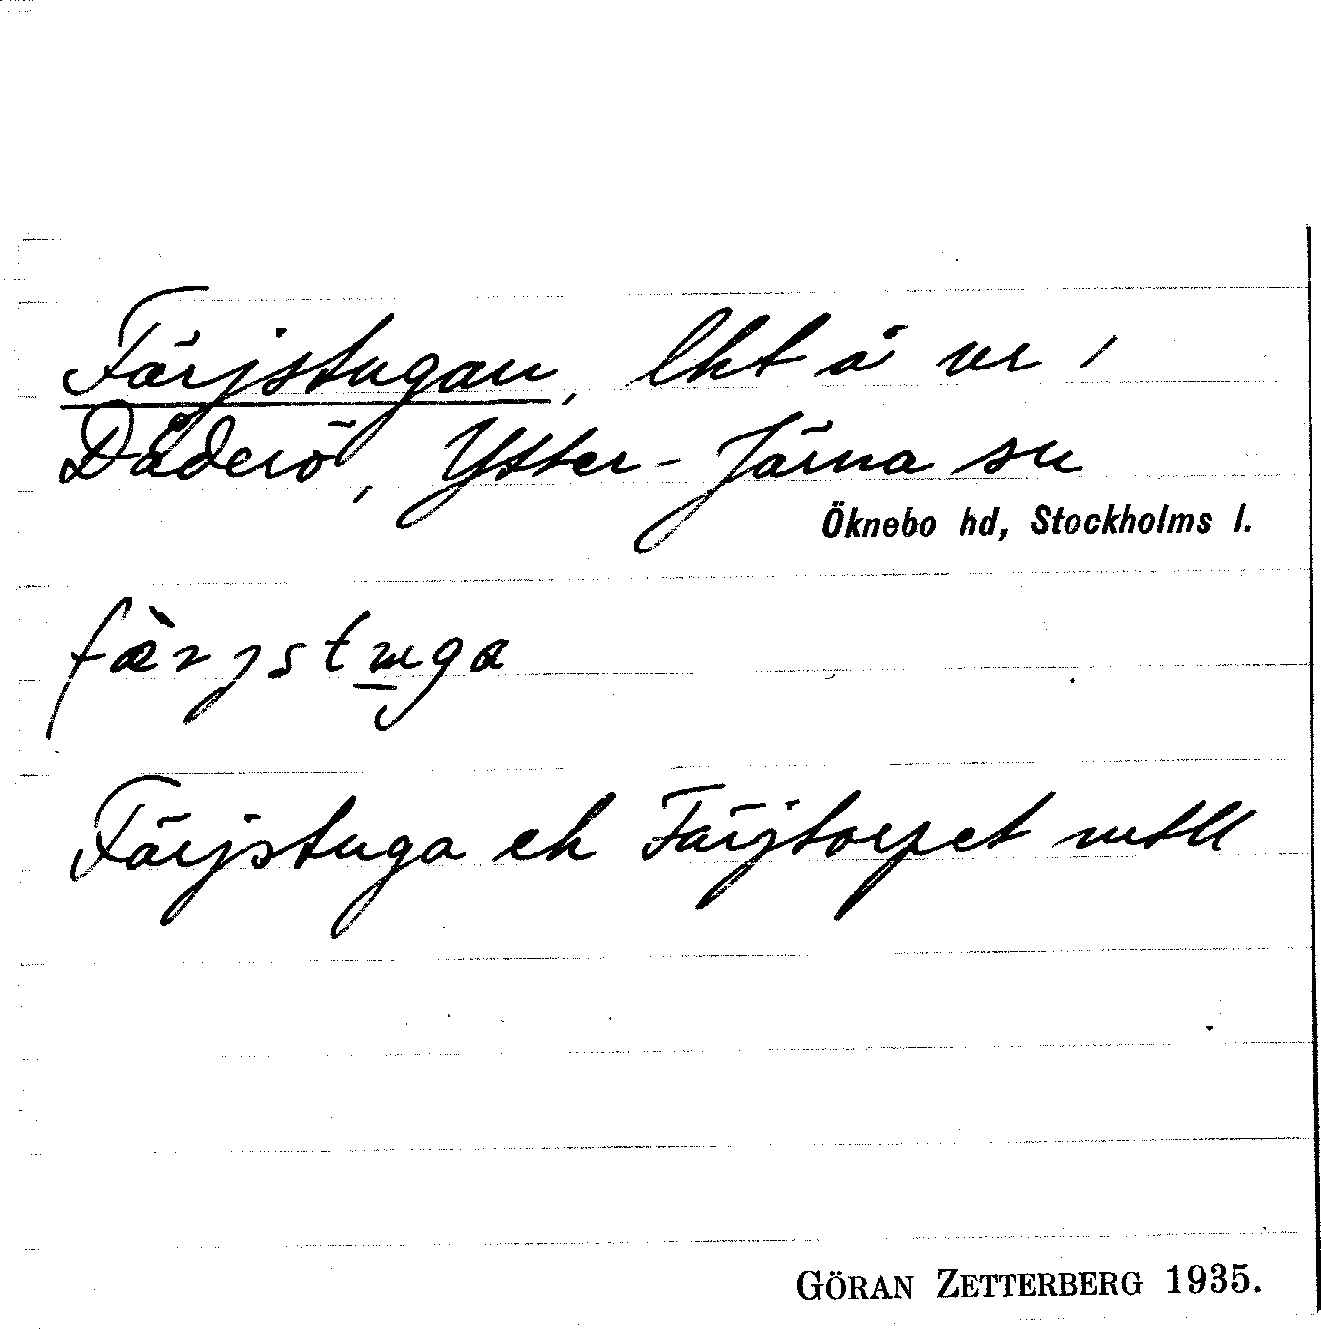 Färjstugan, lht å ur i
Dåderö, Ytter-Järna sn
Öknebo hd, Stockholms l.
fæ̀rjstuga
Färjstuga eh Färjtorpet
GÖRAN ZETTERBERG 1935.